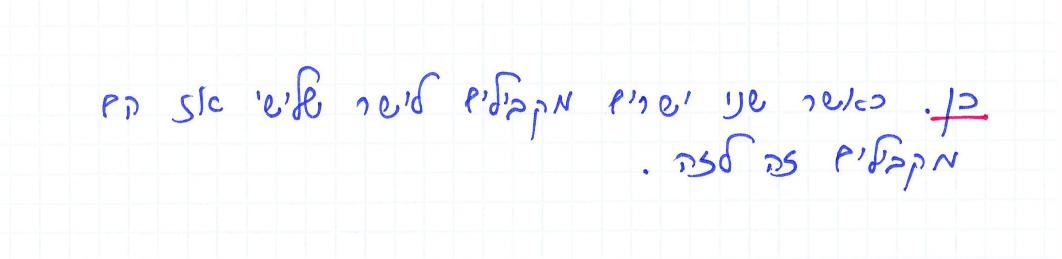 כן. כאשר שני ישרים מקבילים לישר שלישי אז הם
מקבילים זה לזה.